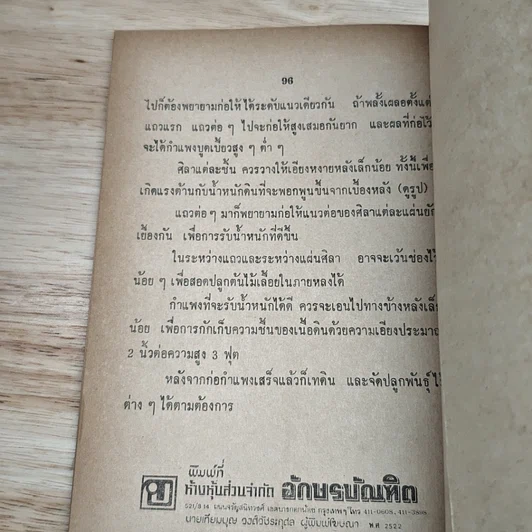 96
ไปก็ต้องพยายามก่อให้ได้ระดับแนวเดียวกัน ถ้าพลั้งเผลอตั้งแต่
แถวแรก แถวต่อ ๆ ไปจะก่อให้สูงเสมอกันยาก และผลที่ก่อไว้
จะได้กำแพงบูดเบี้ยวสูง ๆ ต่ำ ๆ
ศิลาแต่ละชิ้น ควรวางให้เอียงหงายหลังเล็กน้อย ทั้งนี้เพื่อ
เกิดแรงต้านกับน้ำหนักดินที่จะพอกพูนขึ้นจากเบื้องหลัง (ดูรูป)
แถวต่อ ๆ มาก็พยายามก่อให้แนวต่อของศิลาแต่ละแผ่นยัก
เยื้องกัน เพื่อการรับน้ำหนักที่ดีขึ้น
ในระหว่างแถวและระหว่างแผ่นศิลา อาจจะเว้นช่องไว้
น้อย ๆ เพื่อสอดปลูกต้นไม้เลื้อยในภายหลังได้
กำแพงที่จะรับน้ำหนักได้ดี ควรจะเอนไปทางข้างหลังเล็ก
น้อย เพื่อการกักเก็บความชื้นของเนื้อดินด้วยความเอียงประมาณ
2 นิ้วต่อความสูง 3 ฟุต
หลังจากก่อกำแพงเสร็จแล้วก็เทดิน และจัดปลูกพันธุ์ไม้
ต่าง ๆ ได้ตามต้องการ
พิมพ์ที่
ห้างหุ้นส่วนจำกัด อักษรบัณฑิต
ถนนจรัญสนิทวงศ์ เขตบางกอกน้อย กรุงเทพฯ โทร
ผู้พิมพ์โฆษณา พ.ศ. 2522